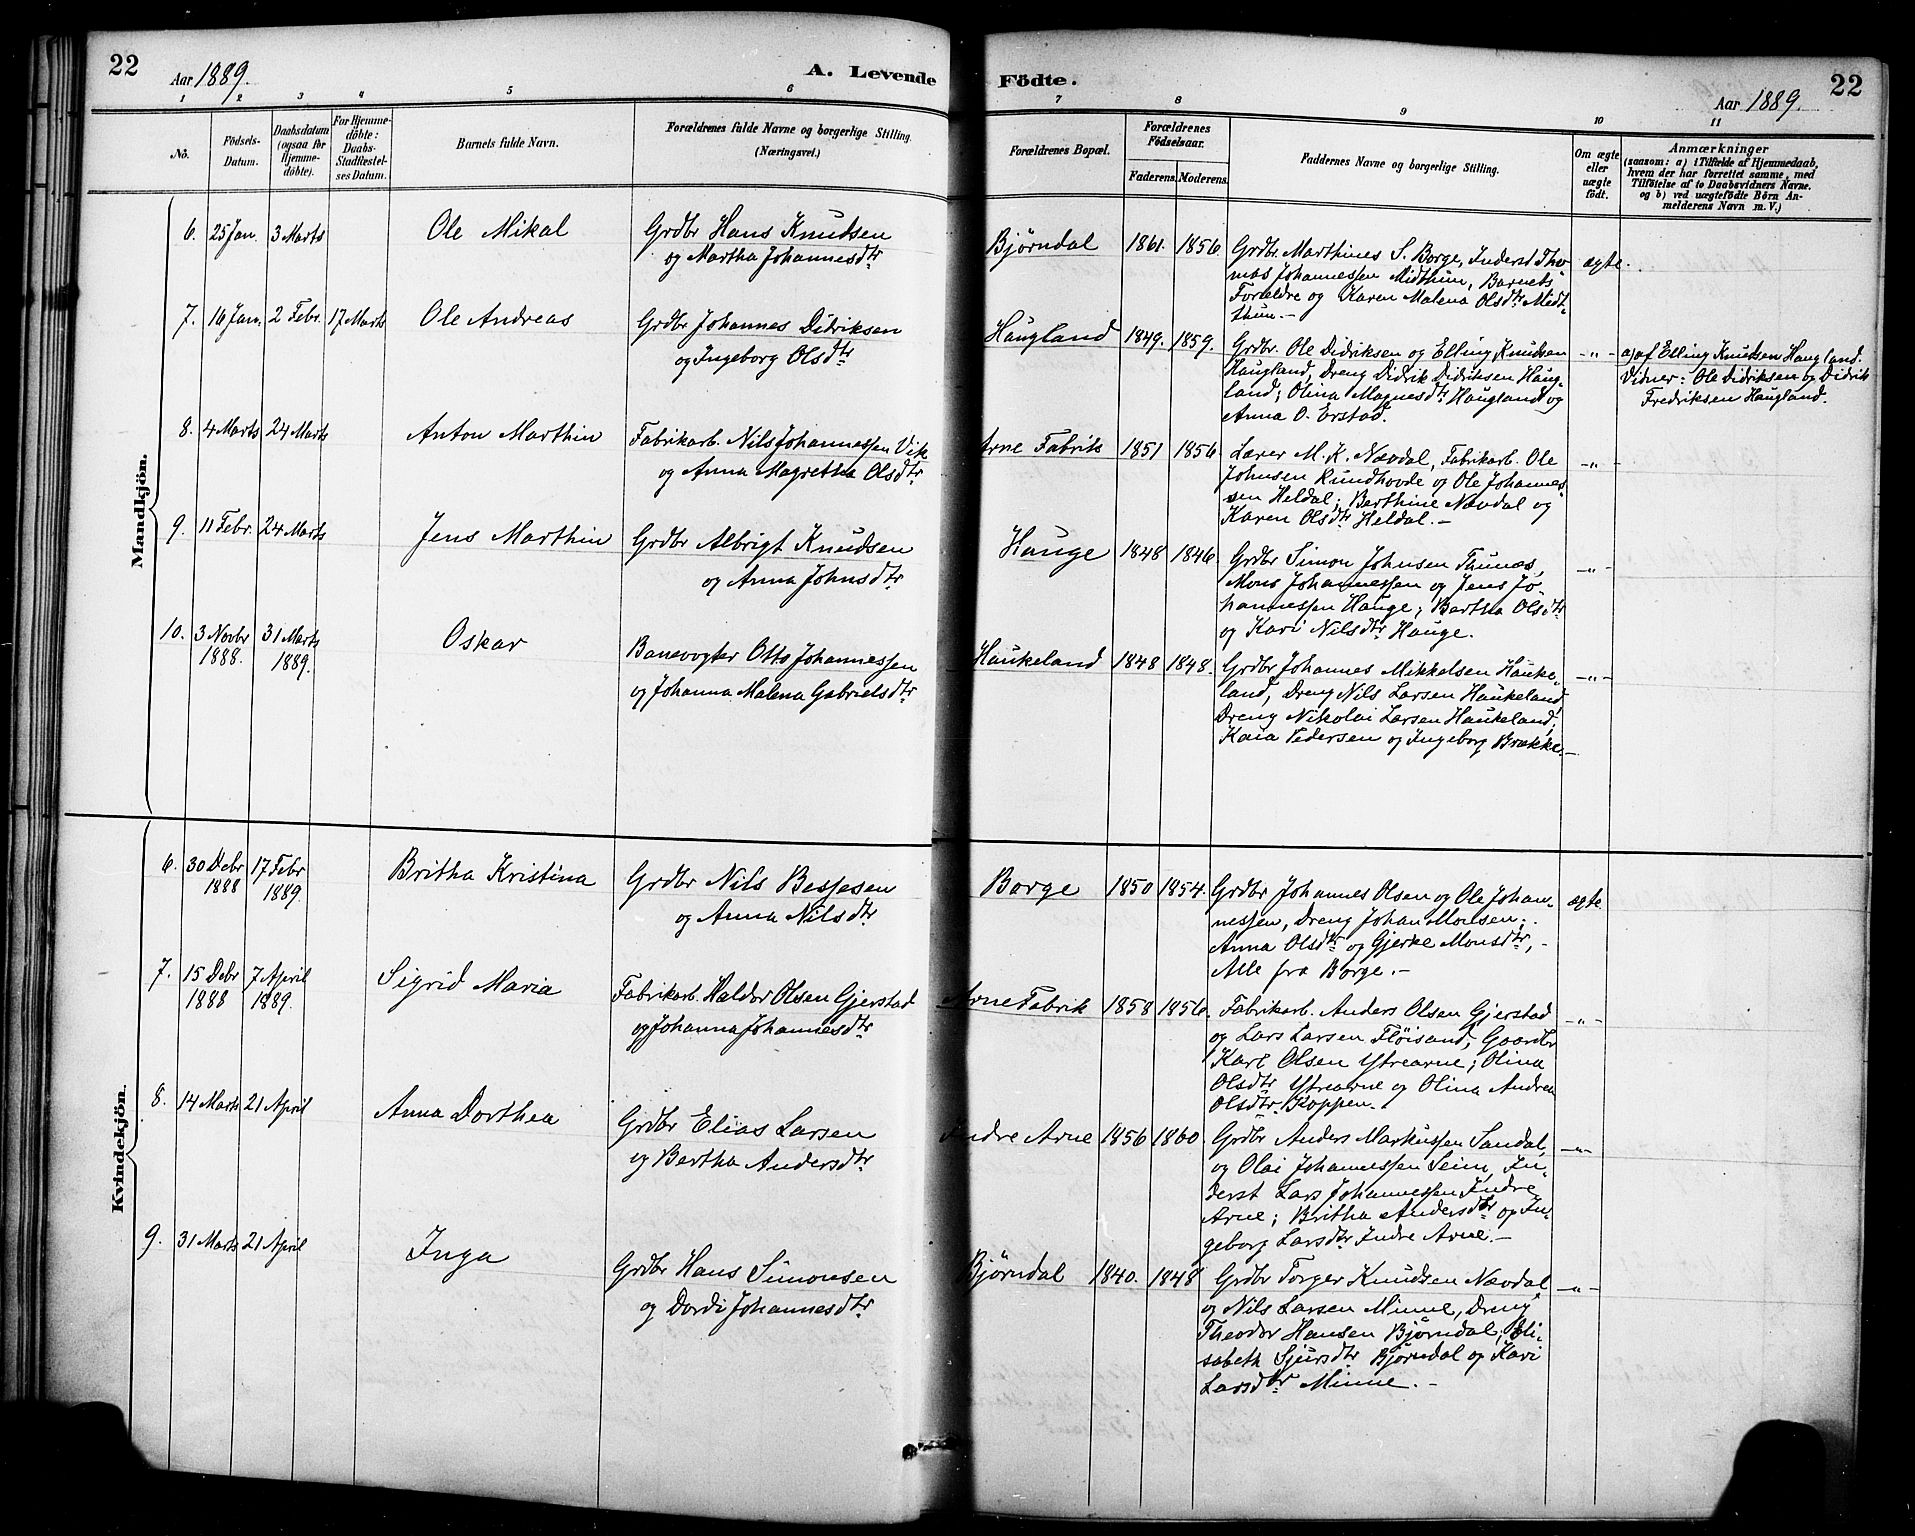 22
Aar 1889.
A. Levende
Födte.
Aar 1889.
22
1 2 3 4 5 6 7 8 9 10 11
No.
Födsels-
Datum.
Daabsdatum
(ogsaa for
Hjemme-
döbte).
For Hjemme-
döbte:
Daabs-
Stadfæstel-
ses Datum.
Barnets fulde Navn.
Forældrenes fulde Navne og borgerlige Stilling.
(Næringsvei.)
Forældrenes Bopæl.
Forældrenes
Födselsaar.
Faderens. Moderens.
Faddernes Navne og borgerlige Stilling.
Om ægte
eller
uægte
födt.
Anmærkninger
(saasom: a) i Tilfælde af Hjemmedaab,
hvem der har forrettet samme, med
Tilföielse af to Daabsvidners Navne.
og b) ved uægtefödte Börn An-
melderens Navn m. V.)
Mandkjön.
6. 25 Jan. 3 Marts
Ole Mikal
Grdbr Hans Knudsen
og Martha Johannesdtr
Bjørndal 1861. 1856.
Grdbr. Marthines S. Borge, Inderst Tho-
mas Johannessen Midthun, Barnets
Forældre og Karen Malena Olsdtr Midt-
thun.-
ægte.
7. 16 Jan. 2 Febr. 17 Marts
Ole Andreas
Grdbr Johannes Didriksen
og Ingeborg Olsdtr
Haugland 1849. 1859.
Grdbr. Ole Didriksen og Elling Knudsen
Haugland, Dreng Didrik Didriksen Haug-
land; Olina Magnesdtr Haugland og
Anna O. Erstad.
-"-
a) af Elling Knudsen Haugland.
Vidner: Ole Didriksen og Didrik
Fredriksen Haugland.
8. 4 Marts 24 Marts
Anton Marthin
Fabrikarb. Nils Johannessen Vik
og Anna Magretha Olsdtr
Arne Fabrik 1851 1856
Lærer M. K. Nævdal, Fabrikarb. Ole
Johnsen Rundhovde og Ole Johannes-
sen Heldal; Berthine Nævdal og
Karen Olsdtr Heldal.-
-"-
9. 11 Febr. 24 Marts
Jens Marthin
Grdbr Albrigt Knudsen
og Anna Johnsdtr
Hauge 1848 1846
Grdbr Simon Johnsen Thunæs,
Mons Johannessen og Jens Jo-
hannessen Hauge; Bertha Olsdtr
og Kari Nilsdtr Hauge.
-"-
10. 3 Novbr 31 Marts
1888. 1889.
Oskar
Banevogter Otto Johannessen
og Johanna Malena Gabrielsdtr
Haukeland 1848 1848.
Grdbr Johannes Mikkelsen Hauke-
land, Dreng Nils Larsen Haukeland,
Dreng Nikolai Larsen Haukeland;
Kaia Pedersen og Ingeborg Brække.-
-"-
Kvindekjön.
6. 30 Debr 17 Febr
1888 1889.
Britha Kristina
Grdbr Nils Bessesen
og Anna Nilsdtr
Borge 1850 1854.
Grdbr Johannes Olsen og Ole Johan-
nessen, Dreng Johan Monsen;
Anna Olsdtr og Gjerke Monsdtr,-
Alle fra Borge.-
ægte
7. 15 Debr 7 April
1888 1889.
Sigrid Maria
Fabrikarb. Haldor Olsen Gjerstad
og Johanna Johannesdtr
Arne Fabrik 1858 1856.
Fabrikarb. Anders Olsen Gjerstad
og Lars Larsen Fløisand, Gaardbr
Karl Olsen Ytrearne; Olina
Olsdtr Ytrearne og Olina Andrea
Olsdtr Koppen.
-"-
8. 14 Marts 21 April
Anna Dorthea
Grdbr Elias Larsen
og Bertha Andersdtr
Indre Arne 1856 1860
Grdbr Anders Markussen Sandal,
og Olai Johannessen Seim, In-
derst Lars Johannessen Indre
Arne; Britha Andersdtr og In-
geborg Larsdtr Indre Arne.-
-"-
9. 31 Marts 21 April
Inga
Grdbr Hans Simonsen
og Dordi Johannesdtr
Bjørndal 1840. 1848
Grdbr Torger Knudsen Nævdal
og Nils Larsen Minne, Dreng
Theodor Hansen Bjørndal; Eli-
sabeth Sjursdtr Bjørndal og Kari
Larsdtr Minne.-
-"-